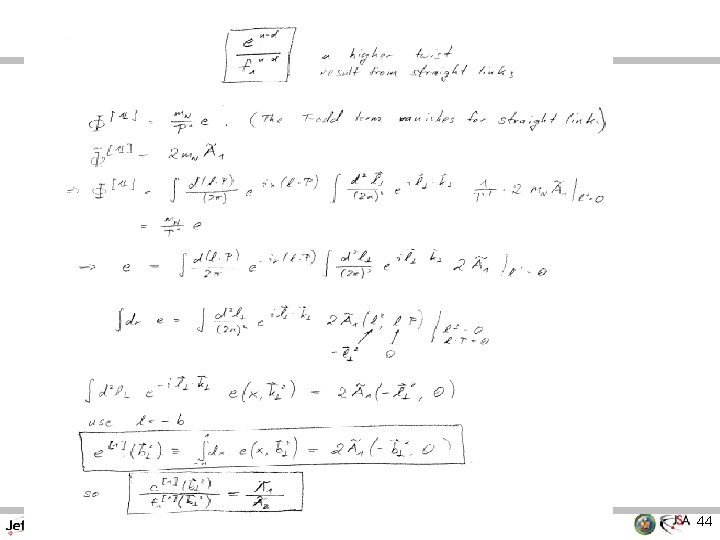 e^{u-d} / f_1^{u-d} a higher twist
result from straight links
Φ^{[1]} = m_N/P^+ e . (The T-odd term vanishes for straight links)
Φ̃^{[1]} = 2 m_N Ã_1
⇒ Φ^{[1]} = ∫ d(l·P)/(2π) e^{-ix(l·P)} ∫ d²l_⊥/(2π)² e^{i l_⊥·k_⊥} 1/P^+ · 2 m_N Ã_1 |_{l^+=0}
= m_N/P^+ e
⇒ e = ∫ d(l·P)/2π e^{-ix(l·P)} ∫ d²l_⊥/(2π)² e^{i l_⊥·k_⊥} 2 Ã_1 |_{l^+=0}
∫dx e = ∫ d²l_⊥/(2π)² e^{i l_⊥·k_⊥} 2 Ã_1(l², l·P) |_{l^+=0, l·P=0}
-l_⊥² 0
∫d²l_⊥ e^{-i l_⊥·k_⊥} e(x, k_⊥²) = 2 Ã_1(-l_⊥², 0)
use l = -b
e^{[1]}(b_⊥²) = ∫_{-1}^{1} dx e(x, b_⊥²) = 2 Ã_1(-b_⊥², 0)
so e^{[1]}(b_⊥²) / f_1^{[1]}(b_⊥²) = Ã_1 / Ã_2
Jef
JSA 44